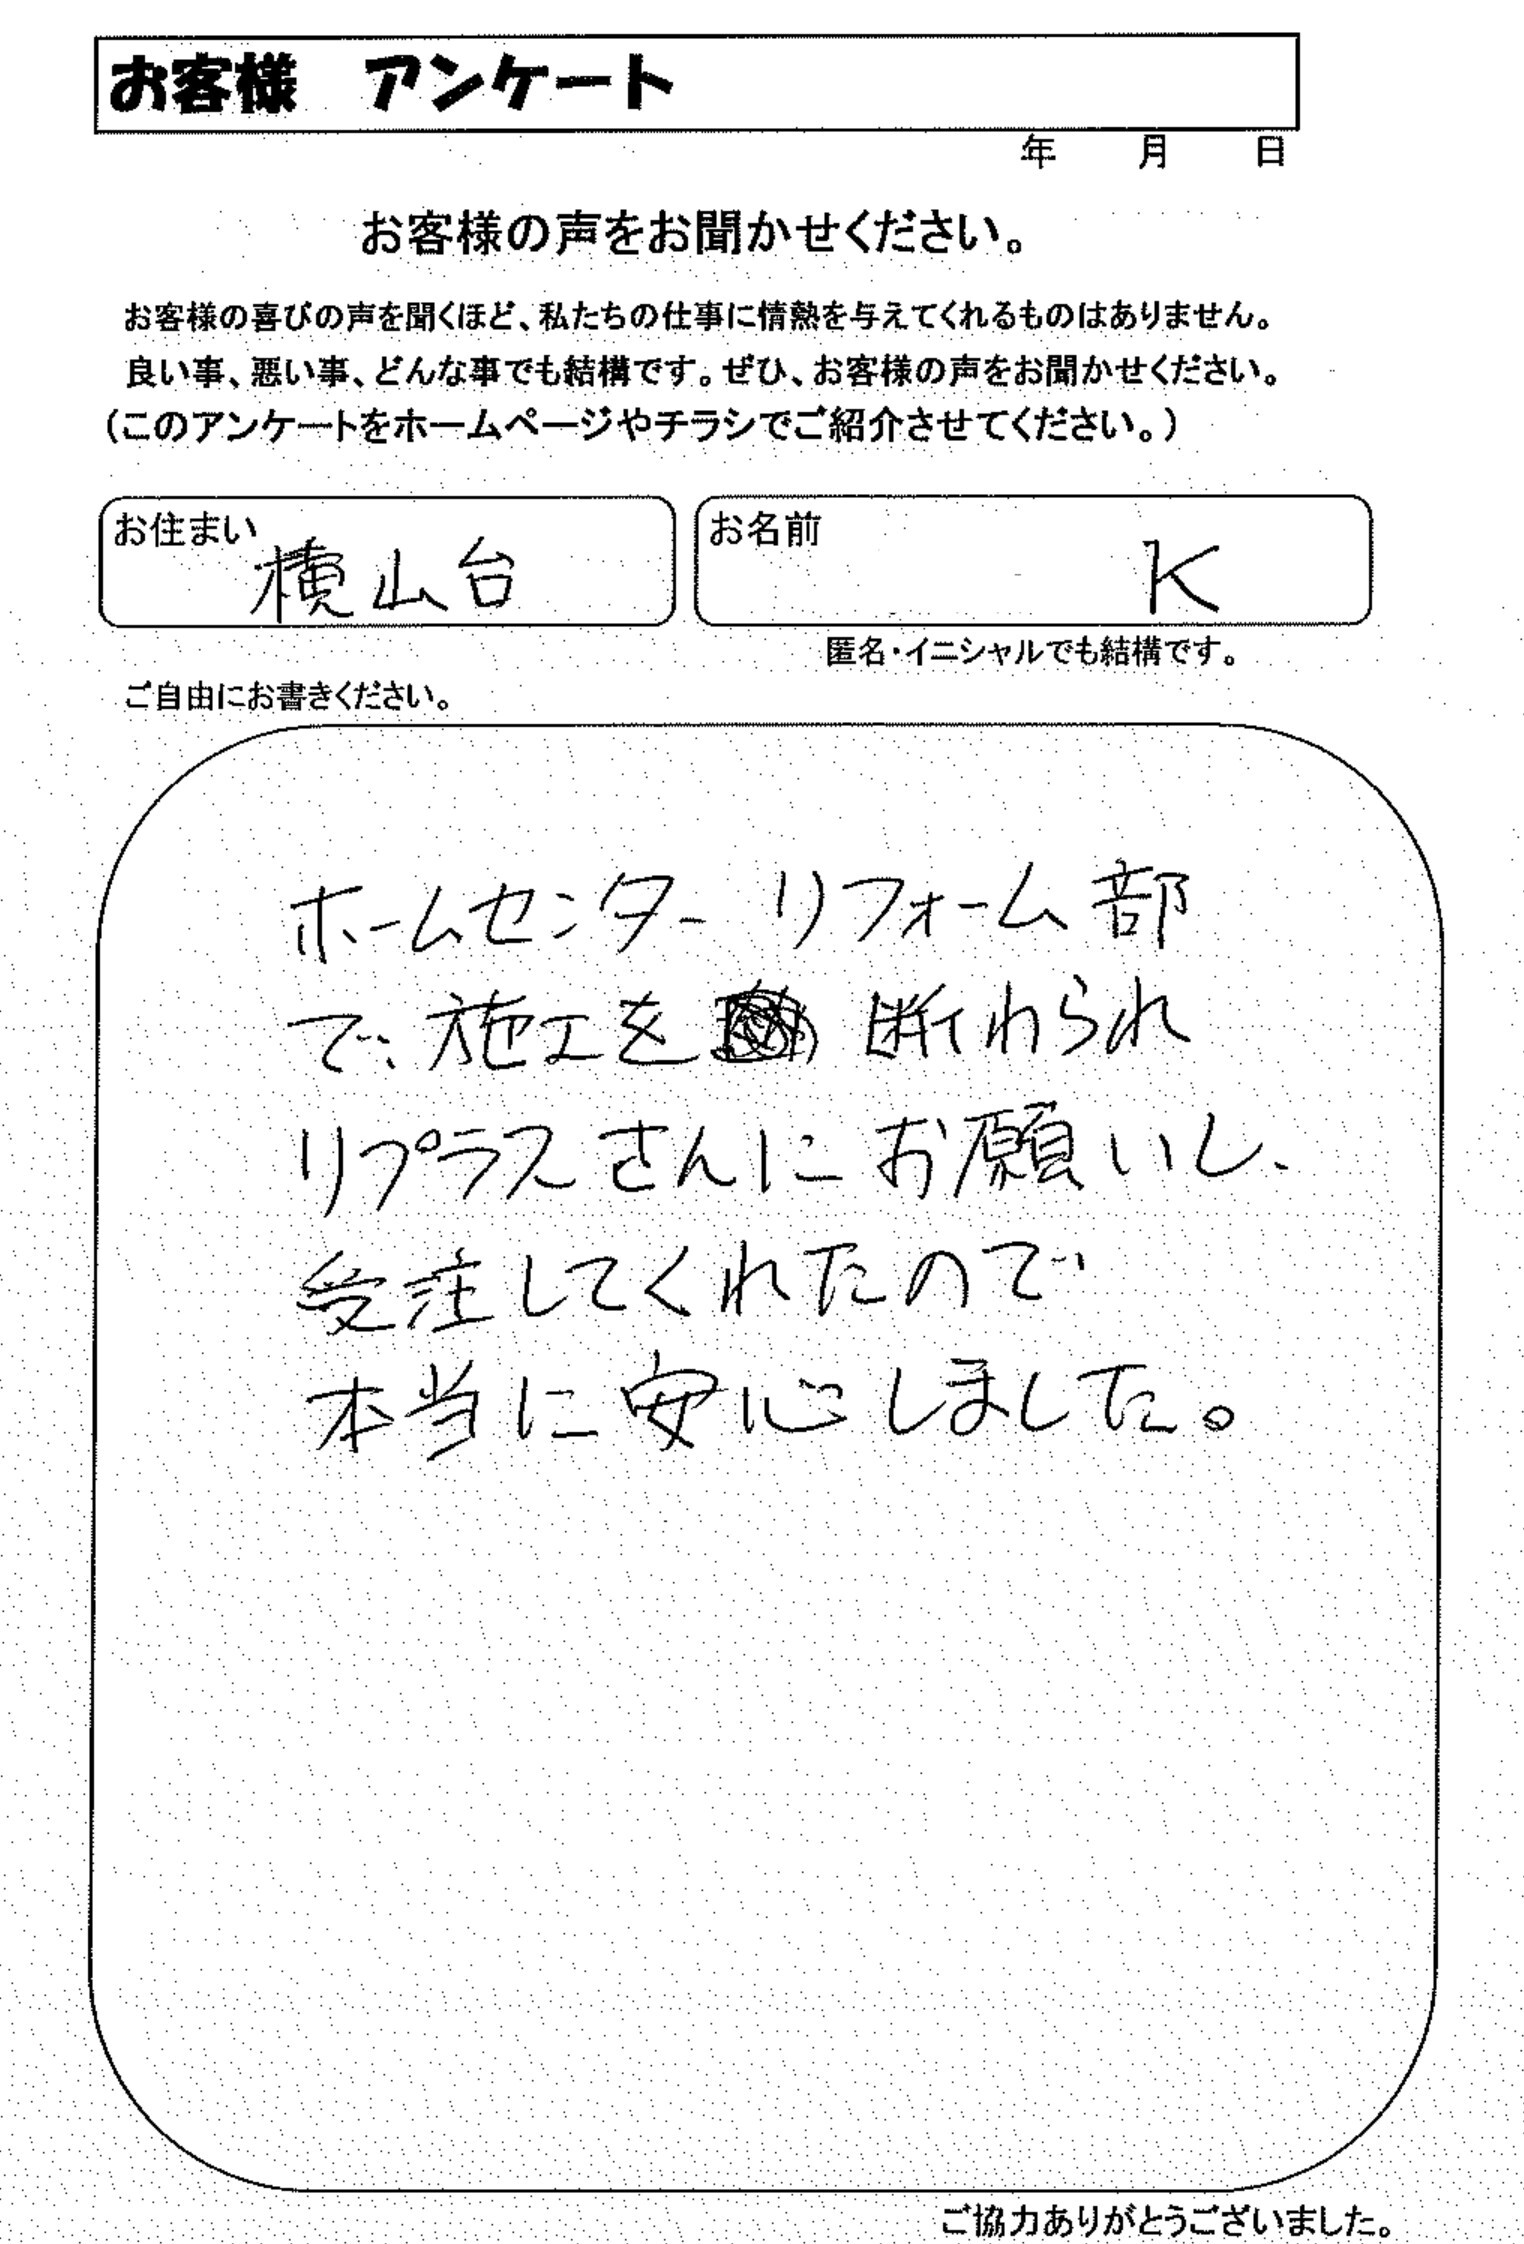 お客様　アンケート
年　月　日
お客様の声をお聞かせください。
お客様の喜びの声を聞くほど、私たちの仕事に情熱を与えてくれるものはありません。
良い事、悪い事、どんな事でも結構です。ぜひ、お客様の声をお聞かせください。
（このアンケートをホームページやチラシでご紹介させてください。）
お住まい　横山台
お名前　K
匿名・イニシャルでも結構です。
ご自由にお書きください。
ホームセンター リフォーム部
で、施工を 断わられ
リプラスさんにお願いし、
受注してくれたので
本当に安心しました。
ご協力ありがとうございました。